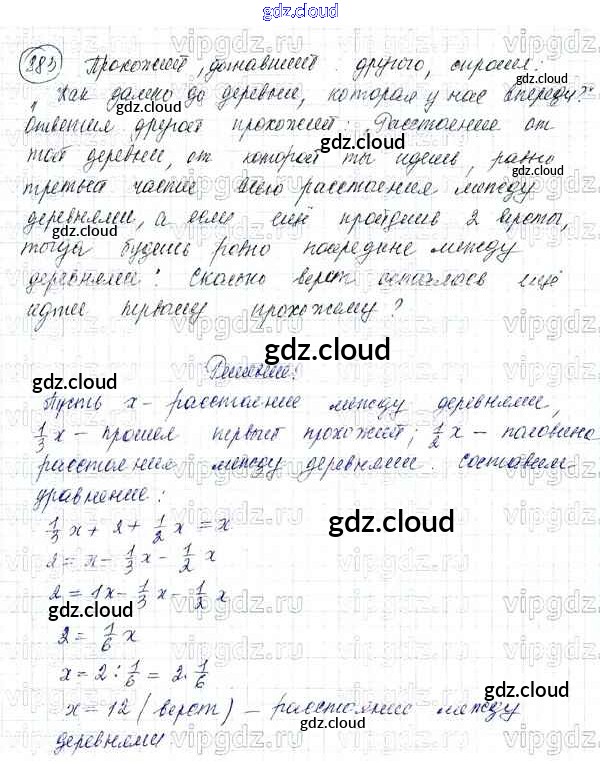 gdz.cloud
383) Прохожий, догнавший другого, спросил:
"Как далеко до деревни, которая у нас впереди?"
Ответил другой прохожий: "Расстояние от
той деревни, от которой ты идешь, равно
третьей части всего расстояния между
деревнями, а если ещё пройдешь 2 версты,
тогда будешь ровно посредине между
деревнями". Сколько верст осталось ещё
идти первому прохожему?
gdz.cloud
Решение:
Пусть x – расстояние между деревнями,
1/3 x – прошел первый прохожий; 1/2 x – половина
расстояния между деревнями. Составим
уравнение:
1/3 x + 2 + 1/2 x = x
2 = x - 1/3 x - 1/2 x
2 = 1x - 1/3 x - 1/2 x
2 = 1/6 x
x = 2 : 1/6 = 2 · 1/6
x = 12 (верст) – расстояние между
деревнями
gdz.cloud
vipgdz.net